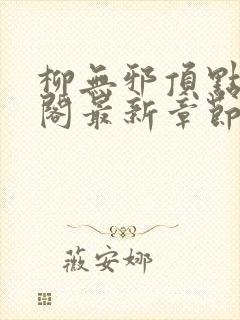 柳無邪頂點
閣最新章節
薇安娜